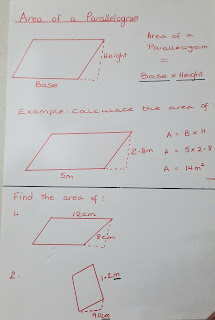 Area of a Parallelogram
Area of a
Parallelogram
=
Base x Height
Height
Base
Example: Calculate the area of
A = B x H
2.8m
A = 5 x 2.8
5m
A = 14m²
Find the area of:
1.
12cm
8cm
2.
1.2m
90cm